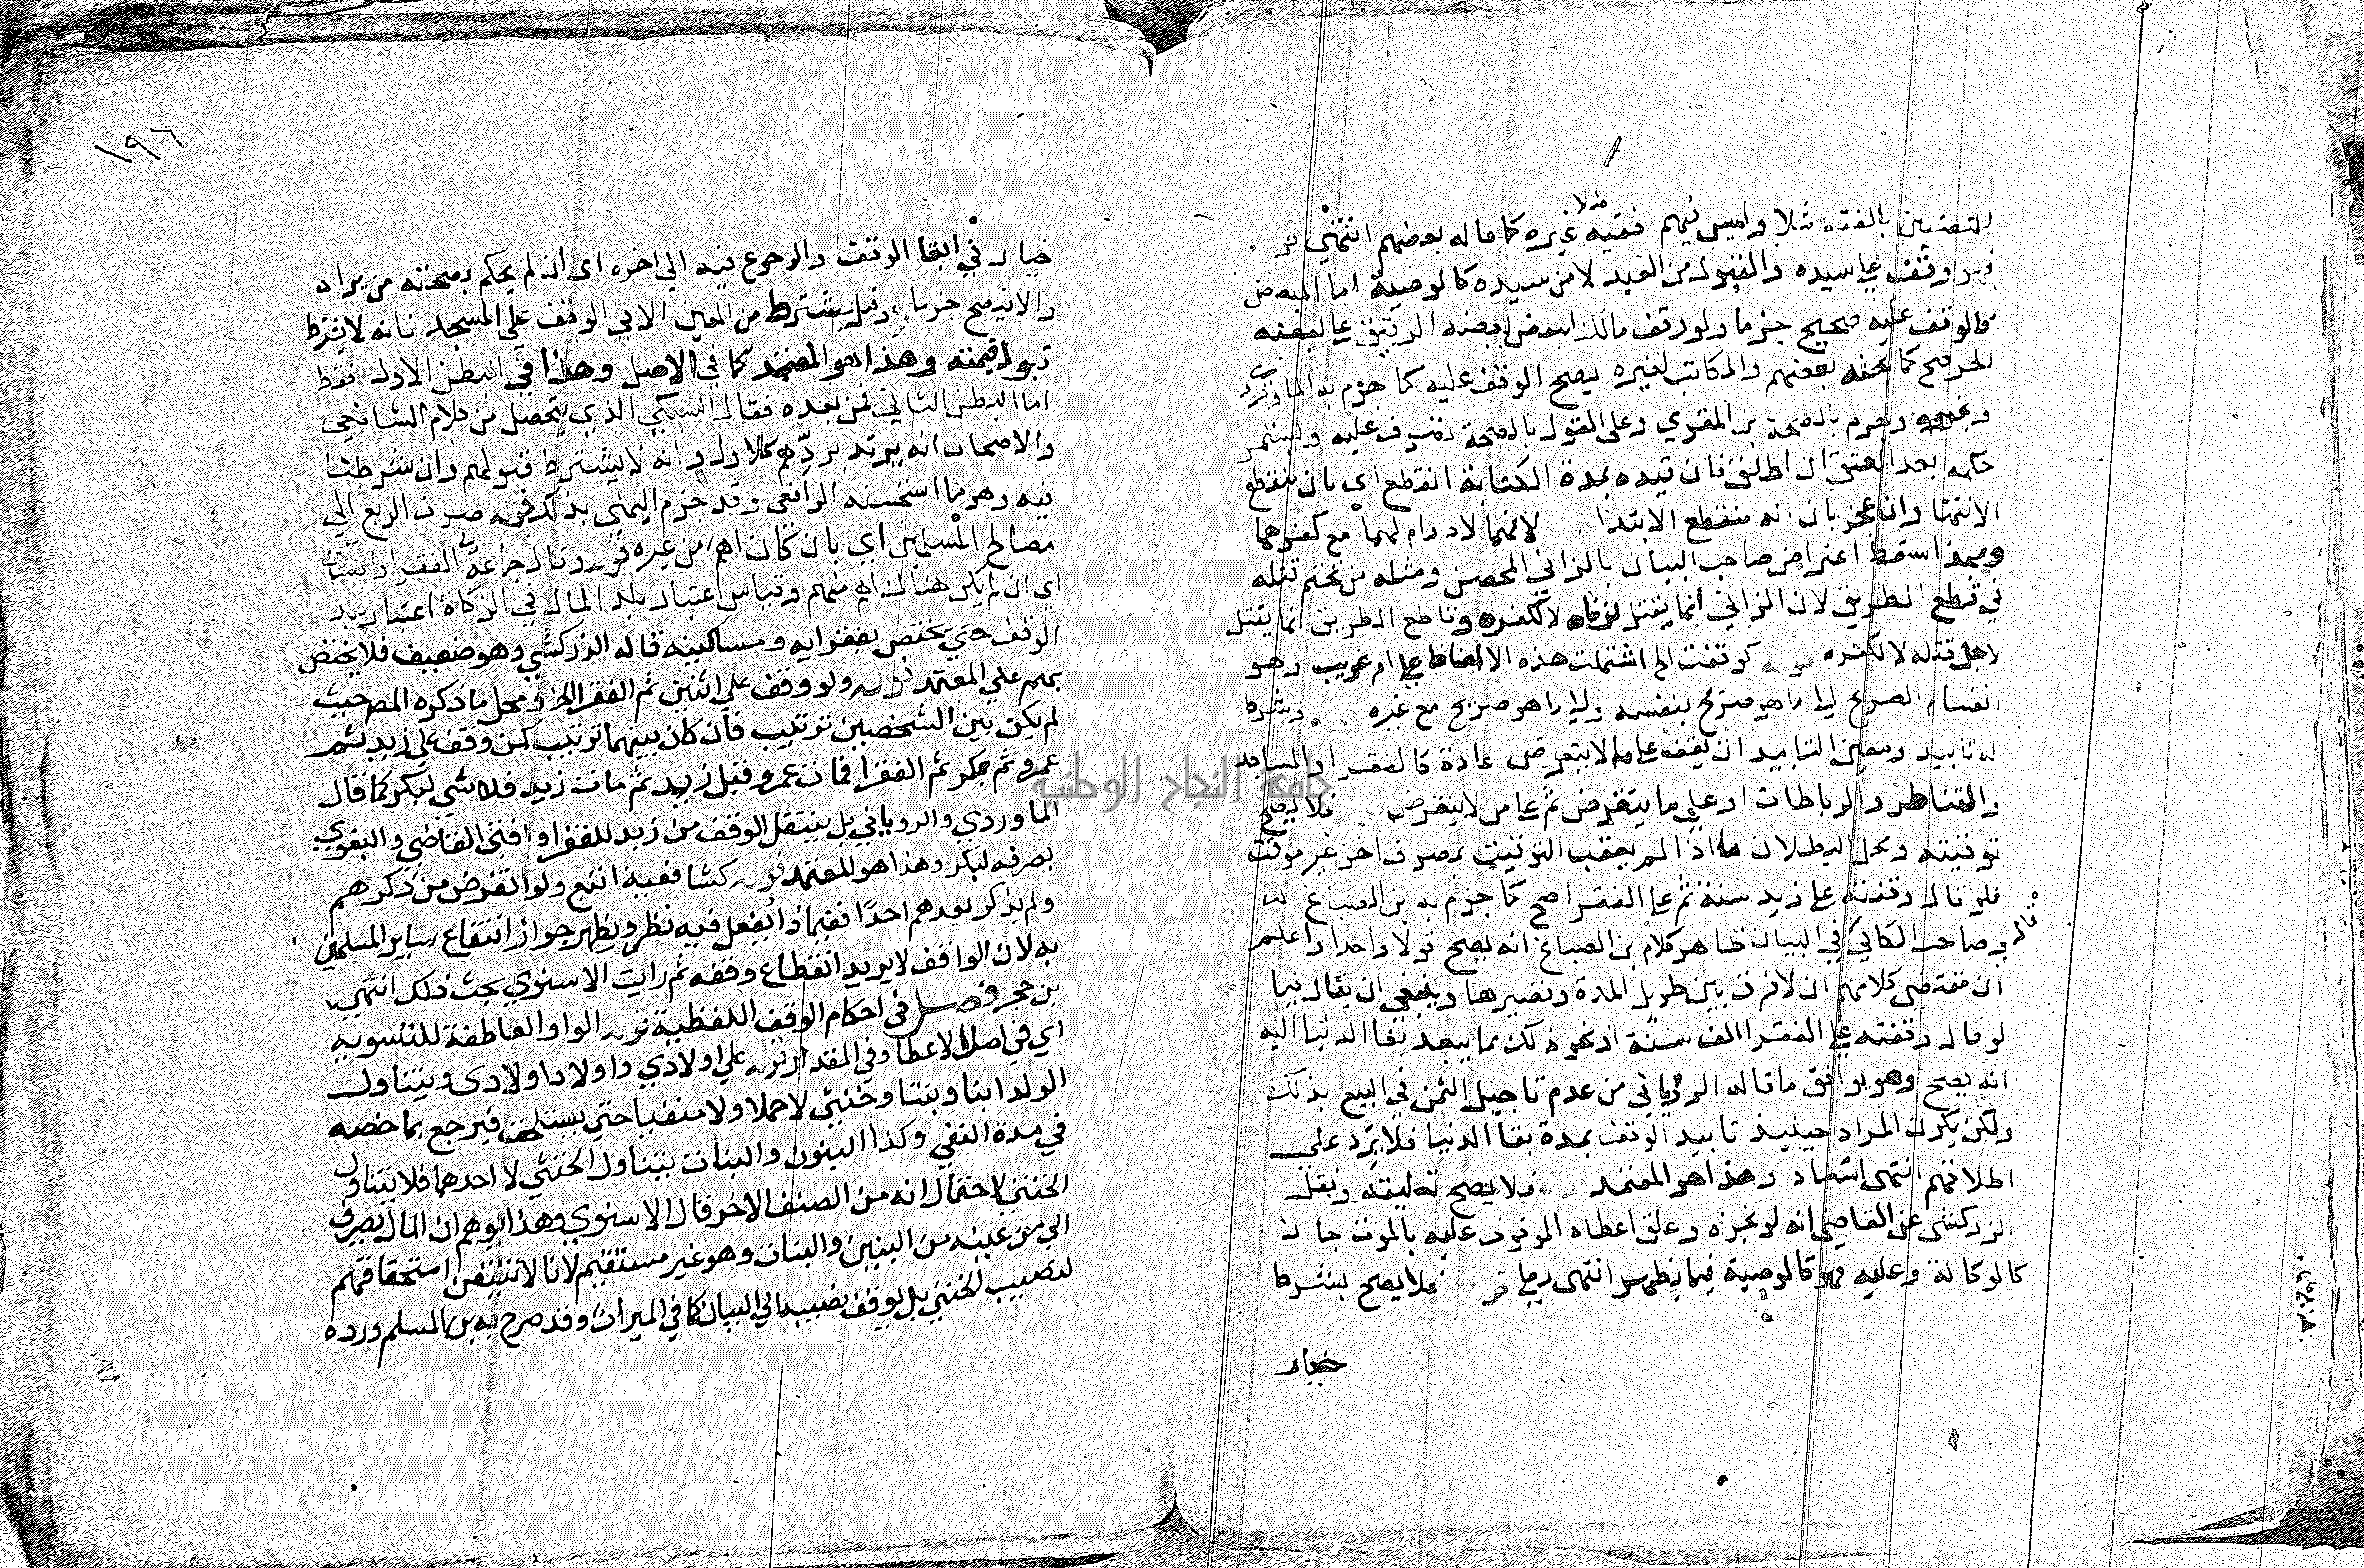 للتصدين بالفقه مثلا وليس فيهم فقيه غيره كما قاله بعضهم انتهى قوله
فهو وقف على سيده والقبول من العبد لا من سيده كالوصية اما المبعض
فالوقف عليه صحيح جزما ولو وقف مالك البعض بعضه الرقيق على بعضه
الحر صح كما بحثه بعضهم والمكاتب لغيره يصح الوقف عليه كما جزم به الماوردي
وغيره وجزم بالصحة بن المقري وعلى القول بالصحة وقف عليه ويستمر
حكمه بعد العتق ان اطلق فان قيده بمدة الكتابة انقطع اي بان ينقطع
الانتها وان عجز بان انه منقطع الابتدا لانهما لا دوام لهما مع كفرهما
وبهذا سقط اعتراض صاحب البيان بالزاني المحصن ومثله من تحتم قتله
في قطع الطريق لان الزاني انما يقتل لزناه لا لكفره وقاطع الطريق انما يقتل
لاجل قتله لا لكفره قوله كوقفت الخ اشتملت هذه الالفاظ على امر غريب وهو
انقسام الصريح الى ما هو صريح بنفسه والى ما هو صريح مع غيره وشرط
له تابيد ومعنى التابيد ان يقف على ما لا ينقرض عادة كالفقرا والمساجد
والقناطر والرباطات او على ما ينقرض ثم على من لا ينقرض فلا يصح
توقيته ومحل البطلان ما اذا لم يعقب التوقيت بمصرف اخر غير موقت
فلو قال وقفته على زيد سنة ثم على الفقرا صح كما جزم به بن الصباغ
قال وصاحب الكافي في البيان ظاهر كلام بن الصباغ انه يصح قولا واحدا واعلم
ان مقتضى كلامهم ان لا فرق بين طويل المدة وقصيرها وينبغي ان يقال فيما
لو قال وقفته على الفقرا الف سنة او نحو ذلك مما يبعد بقا الدنيا اليه
انه يصح وهو يوافق ما قاله الروياني من عدم تاجيل الثمن في البيع بذلك
ولكن يكون المراد حينئذ تابيد الوقف بمدة بقا الدنيا فلا يرد على
اطلاقهم انتهى اشعاد وهذا هو المعتمد فلا يصح تعليقه ونقل
الزركشي عن القاضي انه لو نجزه وعلق اعطاه الموقوف عليه بالموت جاز
كالوكالة وعليه فهو كالوصية فيما يظهر انتهى رملي قوله فلا يصح بشرط
خيار
١٩٦
خيار في ابقا الوقف والرجوع فيه الى اخره اي ان لم يحكم بصحته من يراه
والا فيصح جزما قوله وقيل يشترط من المعين الا في الوقف على المسجد فانه لا يشترط
قبول قيمته وهذا هو المعتمد كما في الاصل وهذا في البطن الاول فقط
اما البطن الثاني فمن بعده فقال السبكي الذي يتحصل من كلام الشافعي
والاصحاب انه يرتد بردهم كالاول وانه لا يشترط قبولهم وان شرطنا
فيه وهو ما استحسنه الرافعي وقد جزم اليمني بذلك قوله صرف الريع الى
مصالح المسلمين اي بان كان اهم من غيره قوله وقال جماعة الى الفقرا والمساكين
اي ان لم يكن هناك اهم منهم وقياس اعتبار بلد المال في الزكاة اعتبار بلد
الوقف حتى يختص بفقرايه ومساكينه قاله الزركشي وهو ضعيف فلا يختص
بهم على المعتمد قوله ولو وقف على اثنين ثم الفقرا الخ ومحل ما ذكره المص حيث
لم يكن بين الشخصين ترتيب فان كان بينهما ترتيب كمن وقف على زيد ثم
عمرو ثم بكر ثم الفقرا فمات عمرو قبل زيد ثم مات زيد فلا شي لبكر كما قال
الماوردي والروياني بل ينتقل الوقف من زيد للفقرا وافتى القاضي والبغوي
بصرفه لبكر وهذا هو المعتمد قوله كشافعية اتبع ولو انقرض من ذكرهم
ولم يذكر بعدهم احدا ففيما ذا يفعل فيه نظر ويظهر جواز انتفاع ساير المسلمين
به لان الواقف لا يريد انقطاع وقفه ثم رايت الاسنوي بحث ذلك انتهى
بن حجر فصل في احكام الوقف اللفظية قوله الواو العاطفة للتسوية
اي في اصل الاعطا وفي المقدار قوله على اولادي واولاد اولادي ويتناول
الولد ابنا وبنتا وخنثى لا حملا ولا منفيا حتى يستلحق فيرجع بما خصه
في مدة النفي وكذا البنون والبنات يتناول الخنثى لا احدهما فلا يتناول
الخنثى لاحتمال انه من الصنف الاخر قال الاسنوي وهذا يوهم ان المال يصرف
الى من عينه من البنين والبنات وهو غير مستقيم لانا لا نتيقن استحقاقهم
لنصيب الخنثى بل يوقف نصيبه الى البيان كما في الميراث وقد صرح به بن المسلم ورده
جامعة النجاح الوطنية